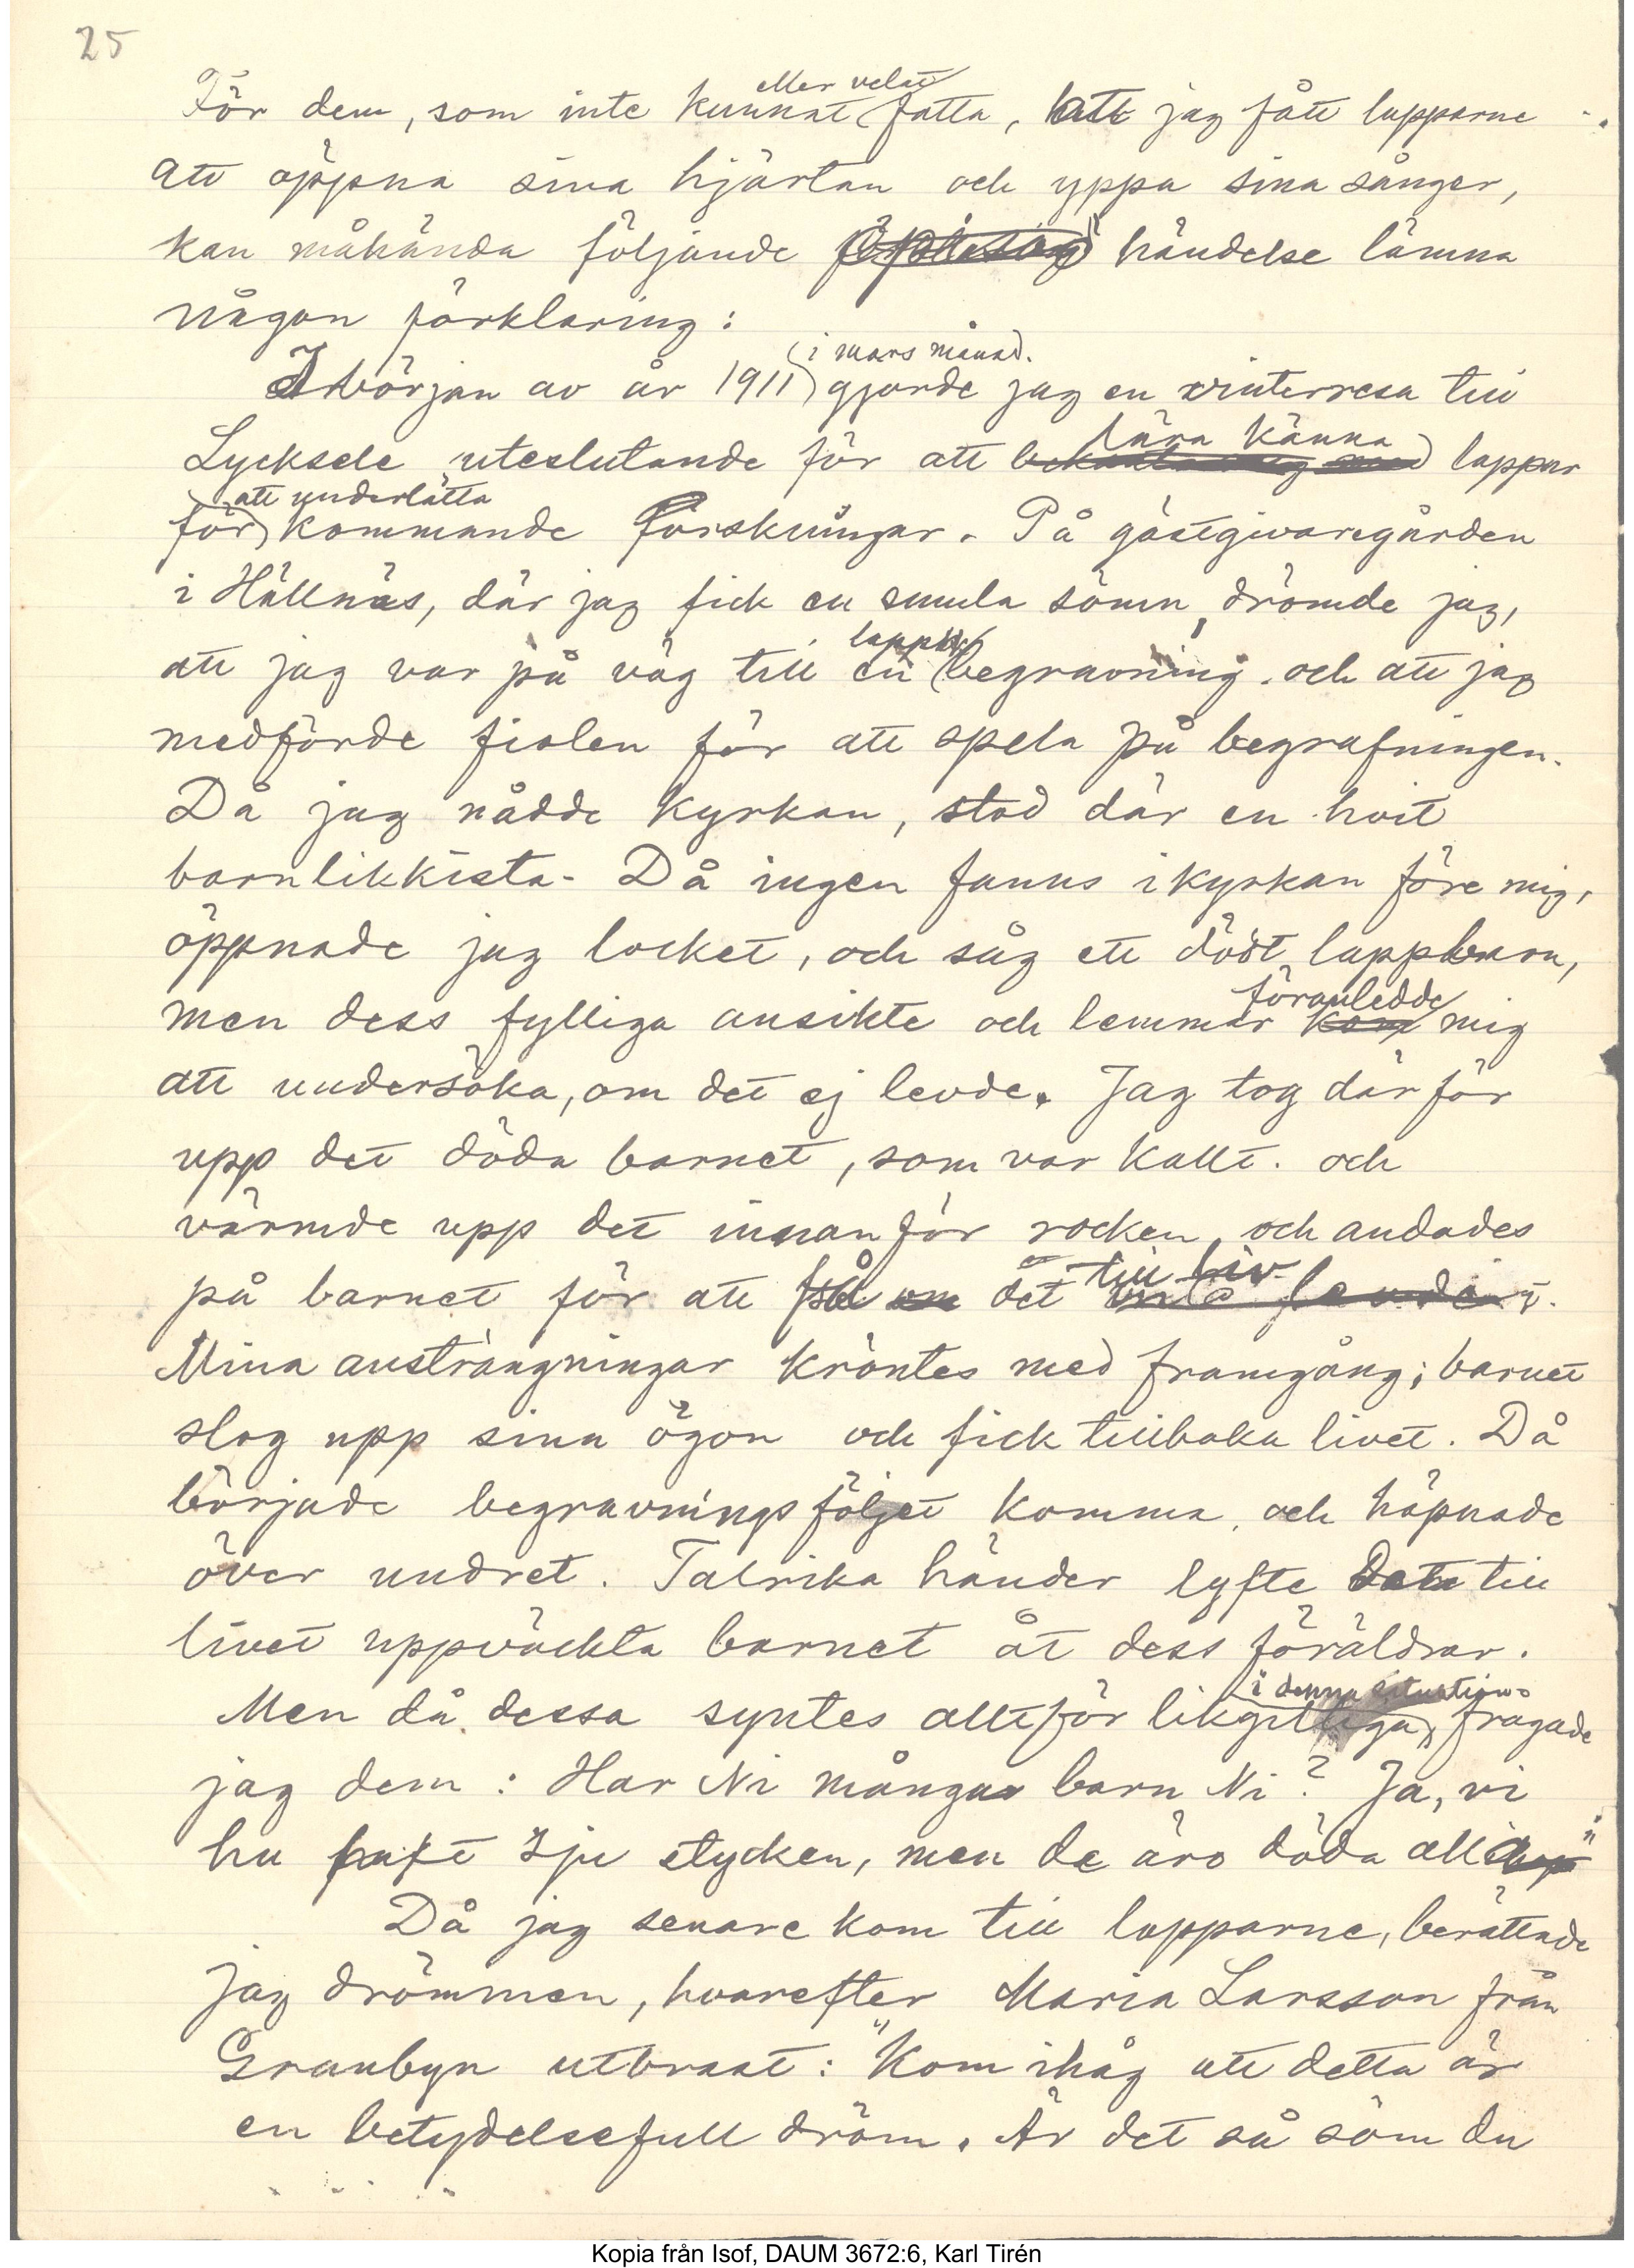 25
För dem, som inte kunnat eller velat fatta, att jag fått lapparne
att öppna sina hjärtan och yppa sina sånger,
kan måhända följande händelse lämna
någon förklaring:
I början av år 1911 (i mars månad.) gjorde jag en vinterresa till
Lycksele uteslutande för att lära känna lappar
för att underlätta kommande forskningar. På gästgivaregården
i Hällnäs, där jag fick en smula sömn, drömde jag,
att jag var på väg till en lappsk begravning. och att jag
medförde fiolen för att spela på begrafningen.
Då jag nådde kyrkan, stod där en hvit
barnlikkista. Då ingen fanns i kyrkan före mig,
öppnade jag locket, och såg ett dödt lappbarn,
men dess fylliga ansikte och lemmar föranledde mig
att undersöka, om det ej levde. Jag tog därför
upp det döda barnet, som var kallt. och
värmde upp det innanför rocken, och andades
på barnet för att få det till liv.
Mina ansträngningar kröntes med framgång; barnet
slog upp sina ögon och fick tillbaka livet. Då
började begravningsföljet komma, och häpnade
över undret. Talrika händer lyfte det till
livet uppväckta barnet åt dess föräldrar.
Men då dessa syntes alltför likgiltiga i denna situation, frågade
jag dem: Har Ni många barn Ni? Ja, vi
ha haft sju stycken, men de äro döda alla"
Då jag senare kom till lapparne, berättade
jag drömmen, hvarefter Maria Larsson från
Granbyn utbrast: "Kom ihåg att detta är
en betydelsefull dröm. Är det så som du
Kopia från Isof, DAUM 3672:6, Karl Tirén